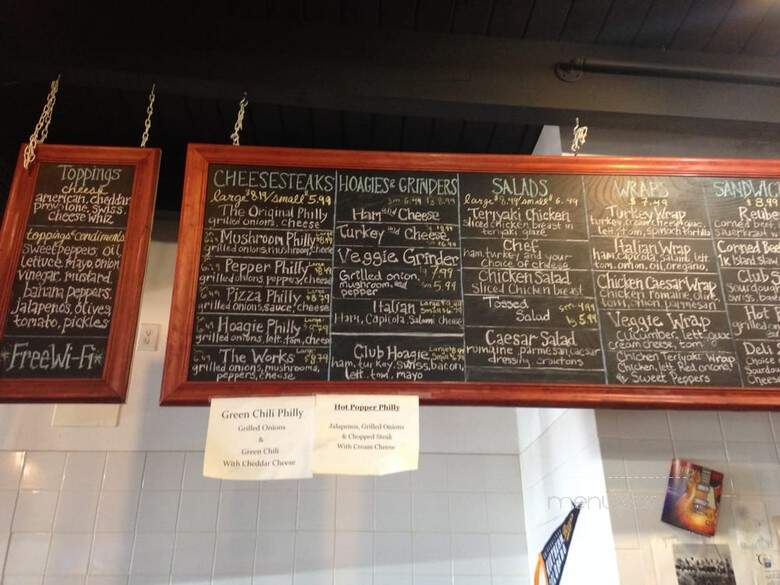 Toppings
cheese
american, cheddar
provolone, swiss,
cheese whiz
toppings & condiments
sweet peppers, oil
lettuce, mayo, onion
vinegar, mustard
banana peppers,
Jalapenos, olives,
tomato, pickles
*FreeWi-Fi*
CHEESESTEAKS
large $8.19/small $5.99
The Original Philly
grilled onions, cheese
Mushroom Philly
grilled onions, mushroom, cheese
Pepper Philly
grilled onions, peppers, cheese
Pizza Philly
grilled onions, sauce, cheese
Hoagie Philly
grilled onions, lett., tom, cheese
The Works
grilled onions, mushrooms,
peppers, cheese
HOAGIES & GRINDERS
sm 6.49 lg 8.99
Ham and Cheese
Turkey and Cheese
Veggie Grinder
Grilled onion,
mushroom, and
pepper
lg 7.99
sm 5.99
Italian
Ham, Capicola, Salami, cheese
Club Hoagie
ham, turkey, swiss, bacon,
lett., tom, mayo
SALADS
large 8.49 small 6.49
Teriyaki Chicken
sliced chicken breast in
teriyaki glaze
Chef
ham, turkey and your
choice of cheese
Chicken Salad
sliced chicken breast
Tossed
Salad
Caesar Salad
romaine, parmesan, caesar
dressing, croutons
WRAPS
$7.49
Turkey Wrap
Italian Wrap
ham, capicola, salami, lett.
tom, onion, oil, oregano,
Chicken Caesar Wrap
Veggie Wrap
cucumber, lett, guac
cream cheese, tom
Chicken Teriyaki Wrap
Chicken, lett, Red onions
Sweet Peppers
SANDWIC
$8.99
Reube
Corned Beef
Club S
Hot
Deli
Green Chili Philly
Grilled Onions
&
Green Chili
With Cheddar Cheese
Hot Popper Philly
Jalapenos, Grilled Onions
& Chopped Steak
With Cream Cheese